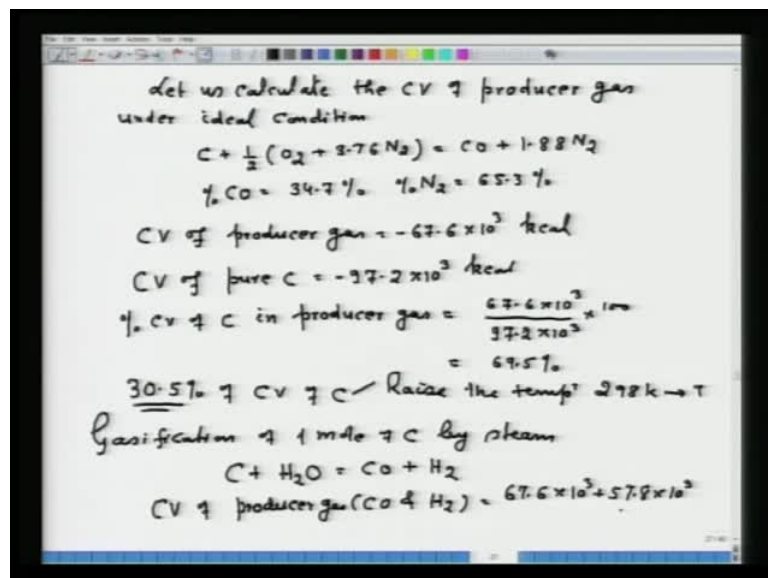 Let us calculate the CV of producer gas
under ideal condition
C + 1/2 (O2 + 3.76 N2) = CO + 1.88 N2
% CO = 34.7 % % N2 = 65.3 %
CV of producer gas = -67.6 × 10³ kcal
CV of pure C = -97.2 × 10³ kcal
% CV of C in producer gas = 67.6 × 10³ / 97.2 × 10³ × 100
= 69.5%
30.5% of CV of C Raise the tempr 298K → T
Gasification of 1 mole of C by steam
C + H2O = CO + H2
CV of producer gas (CO & H2) = 67.6 × 10³ + 57.8 × 10³